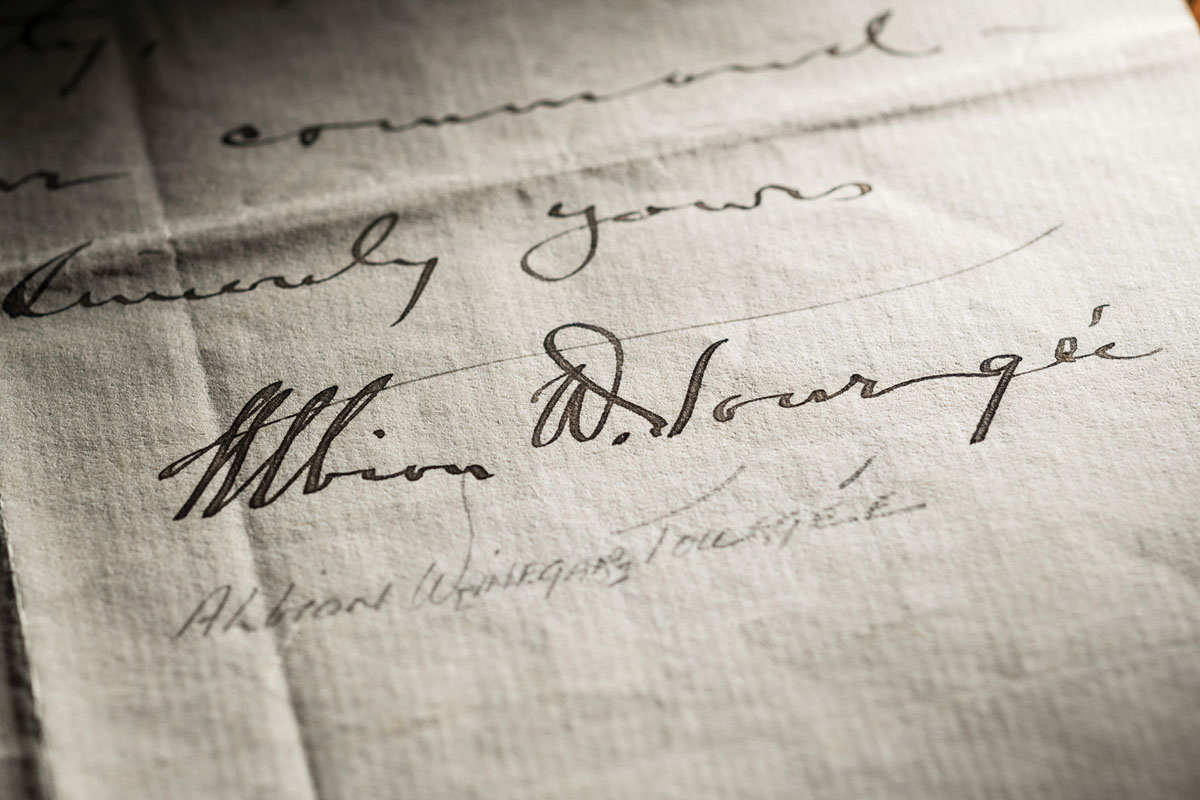 command -
Sincerely yours
Albion W. Tourgée
Albion Winegar Tourgée